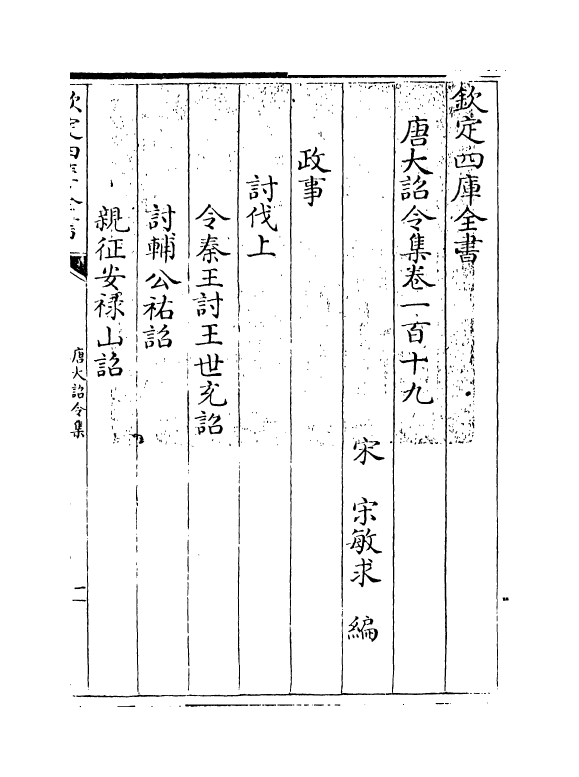 欽定四庫全書
唐大詔令集卷一百十九
宋 宋敏求 編
政事
討伐上
令秦王討王世充詔
討輔公祏詔
親征安祿山詔
欽定四庫全書
唐大詔令集
一